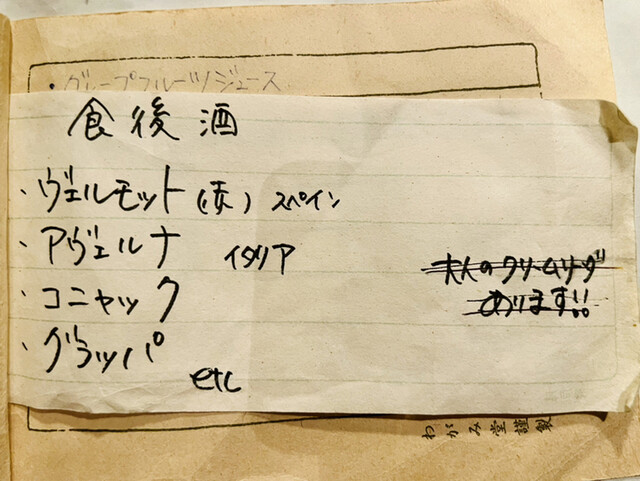 ・グループフルーツジュース
食後酒
・ヴェルモット(赤) スペイン
・アヴェルナ イタリア
・コニャック
・グラッパ
etc
大人のクリームソーダ
あります!!
わがみ堂謹製